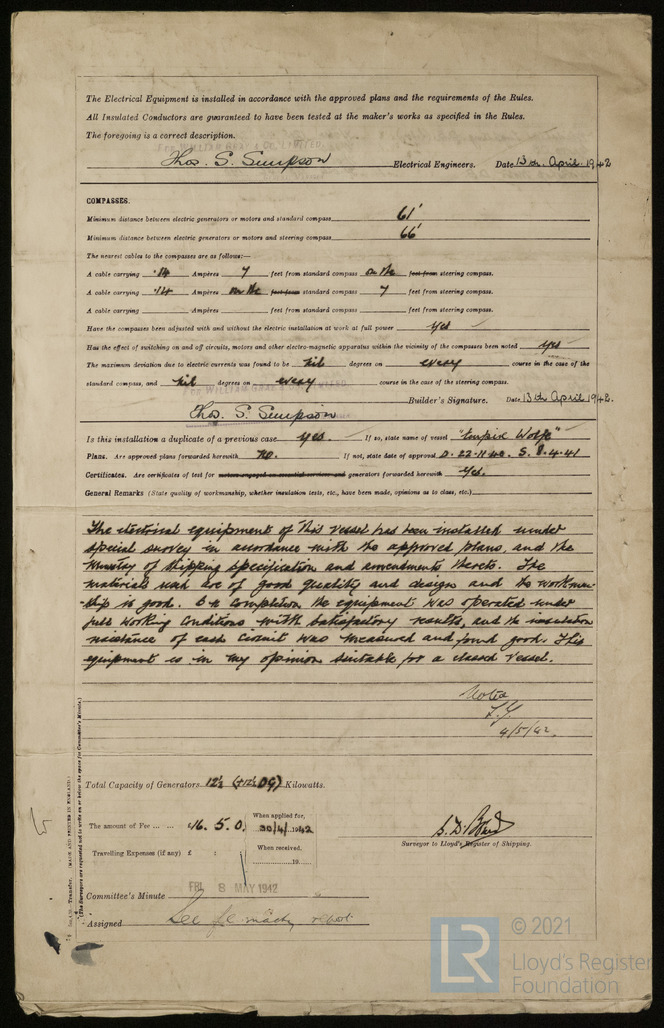 The Electrical Equipment is installed in accordance with the approved plans and the requirements of the Rules.
All Insulated Conductors are guaranteed to have been tested at the maker's works as specified in the Rules.
The foregoing is a correct description.
For WILLIAM GRAY & CO. LIMITED.
Thos. S. Simpson Electrical Engineers. Date 13th April 1942
COMPASSES.
Minimum distance between electric generators or motors and standard compass 61'
Minimum distance between electric generators or motors and steering compass 66'
The nearest cables to the compasses are as follows:—
A cable carrying .14 Ampères 7 feet from standard compass on the feet from steering compass.
A cable carrying .14 Ampères on the feet from standard compass 7 feet from steering compass.
A cable carrying Ampères feet from standard compass feet from steering compass.
Have the compasses been adjusted with and without the electric installation at work at full power yes
Has the effect of switching on and off circuits, motors and other electro-magnetic apparatus within the vicinity of the compasses been noted yes
The maximum deviation due to electric currents was found to be nil degrees on every course in the case of the
standard compass, and nil degrees on every course in the case of the steering compass.
For WILLIAM GRAY & CO. LIMITED.
Thos. S. Simpson Builder's Signature. Date 13th April 1942.
Is this installation a duplicate of a previous case yes. If so, state name of vessel "Empire Wolfe"
Plans. Are approved plans forwarded herewith no. If not, state date of approval D. 22.11.40. S. 8.4.41
Certificates. Are certificates of test for motors engaged on essential services and generators forwarded herewith Yes.
General Remarks (State quality of workmanship, whether insulation tests, etc., have been made, opinions as to class, etc.)
The electrical equipment of this vessel has been installed under
special survey in accordance with the approved plans, and the
Ministry of Shipping specification and amendments thereto. The
materials used are of good quality and design and the workman
-ship is good. On completion the equipment was operated under
full working conditions with satisfactory results, and the insulation
resistance of each circuit was measured and found good. This
equipment is in my opinion suitable for a classed vessel.
Noted
4/5/42.
Total Capacity of Generators 12½ Kilowatts.
The amount of Fee ... ... £16. 5. 0. When applied for, 30/4/1942
Travelling Expenses (if any) £ : : When received, 19
Surveyor to Lloyd's Register of Shipping.
Committee's Minute FRI. 8 MAY 1942
Assigned See mchy report
Transfer. (MADE AND PRINTED IN ENGLAND.)
(The Surveyors are requested not to write on or below the space for Committee's Minute.)
LR
© 2021
Lloyd's Register
Foundation